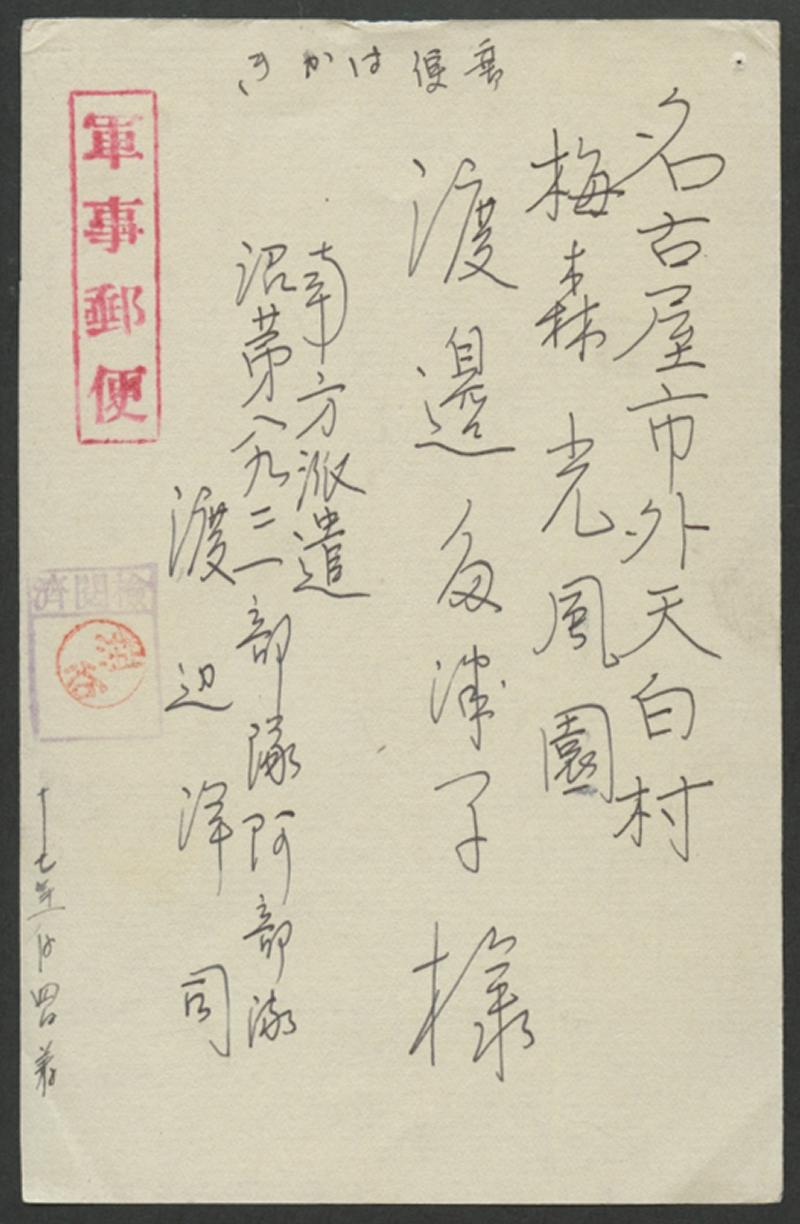 郵便はかき
名古屋市外天白村
梅森光風園
渡邉多津子様
南方派遣
沼第八九二一部隊阿部隊
渡辺洋司
軍事郵便
検閲済
十七年一月四日着